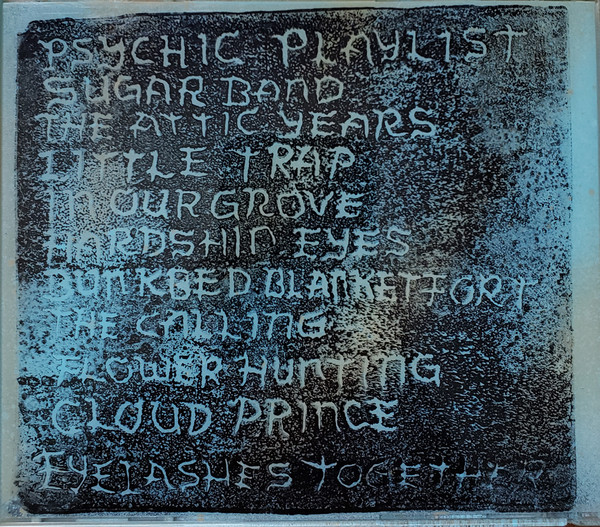 PSYCHIC PLAYLIST
SUGAR BAND
THE ATTIC YEARS
LITTLE TRAP
IN OUR GROVE
HARDSHIP EYES
BUNKBED BLANKETFORT
THE CALLING
FLOWER HUNTING
CLOUD PRINCE
EYELASHES TOGETHER